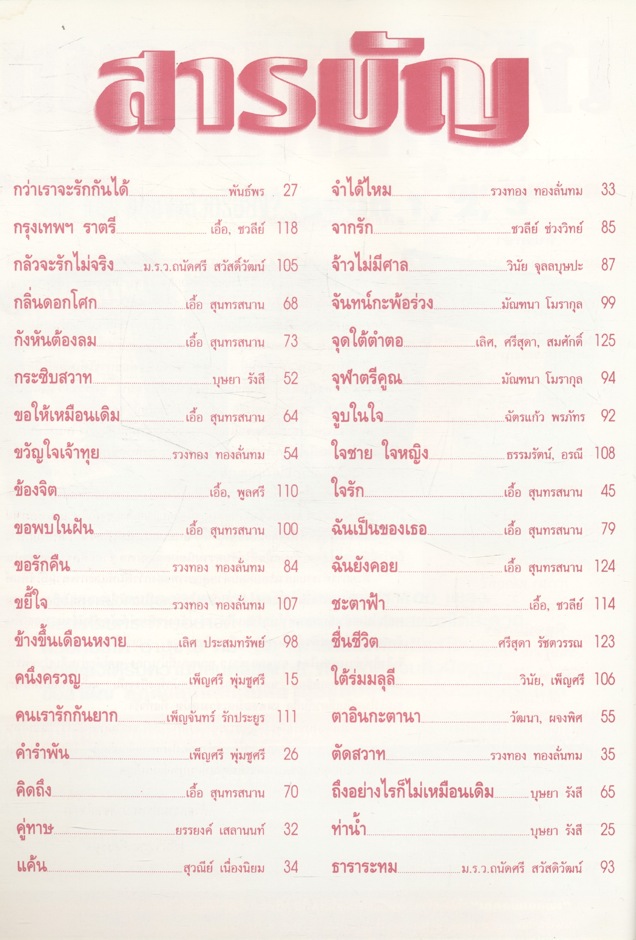 สารบัญ
กว่าเราจะรักกันได้ พันธ์พร 27
กรุงเทพฯ ราตรี เอื้อ, ชวลีย์ 118
กลัวจะรักไม่จริง ม.ร.ว.ถนัดศรี สวัสดิ์วัฒน์ 105
กลิ่นดอกโศก เอื้อ สุนทรสนาน 68
กังหันต้องลม เอื้อ สุนทรสนาน 73
กระซิบสวาท บุษยา รังสี 52
ขอให้เหมือนเดิม เอื้อ สุนทรสนาน 64
ขวัญใจเจ้าทุย รวงทอง ทองลั่นทม 54
ข้องจิต เอื้อ, พูลศรี 110
ขอพบในฝัน เอื้อ สุนทรสนาน 100
ขอรักคืน รวงทอง ทองลั่นทม 84
ขยี้ใจ รวงทอง ทองลั่นทม 107
ข้างขึ้นเดือนหงาย เลิศ ประสมทรัพย์ 98
คนึงครวญ เพ็ญศรี พุ่มชูศรี 15
คนเรารักกันยาก เพ็ญจันทร์ รักประยูร 111
คำรำพัน เพ็ญศรี พุ่มชูศรี 26
คิดถึง เอื้อ สุนทรสนาน 70
คู่ทาษ ยรรยงค์ เสลานนท์ 32
แค้น สุวณีย์ เนื่องนิยม 34
จำได้ไหม รวงทอง ทองลั่นทม 33
จากรัก ชวลีย์ ช่วงวิทย์ 85
จ้าวไม่มีศาล วินัย จุลลบุษปะ 87
จันทน์กะพ้อร่วง มัณฑนา โมรากุล 99
จุดใต้ตำตอ เลิศ, ศรีสุดา, สมศักดิ์ 125
จุฬาตรีคูณ มัณฑนา โมรากุล 94
จูบในใจ ฉัตรแก้ว พรภัทร 92
ใจชาย ใจหญิง ธรรมรัตน์, อรณี 108
ใจรัก เอื้อ สุนทรสนาน 45
ฉันเป็นของเธอ เอื้อ สุนทรสนาน 79
ฉันยังคอย เอื้อ สุนทรสนาน 124
ชะตาฟ้า เอื้อ, ชวลีย์ 114
ชื่นชีวิต ศรีสุดา รัชตวรรณ 123
ใต้ร่มมลุลี วินัย, เพ็ญศรี 106
ตาอินกะตานา วัฒนา, ผจงพิศ 55
ตัดสวาท รวงทอง ทองลั่นทม 35
ถึงอย่างไรก็ไม่เหมือนเดิม บุษยา รังสี 65
ท่าน้ำ บุษยา รังสี 25
ธาราระทม ม.ร.ว.ถนัดศรี สวัสดิวัฒน์ 93